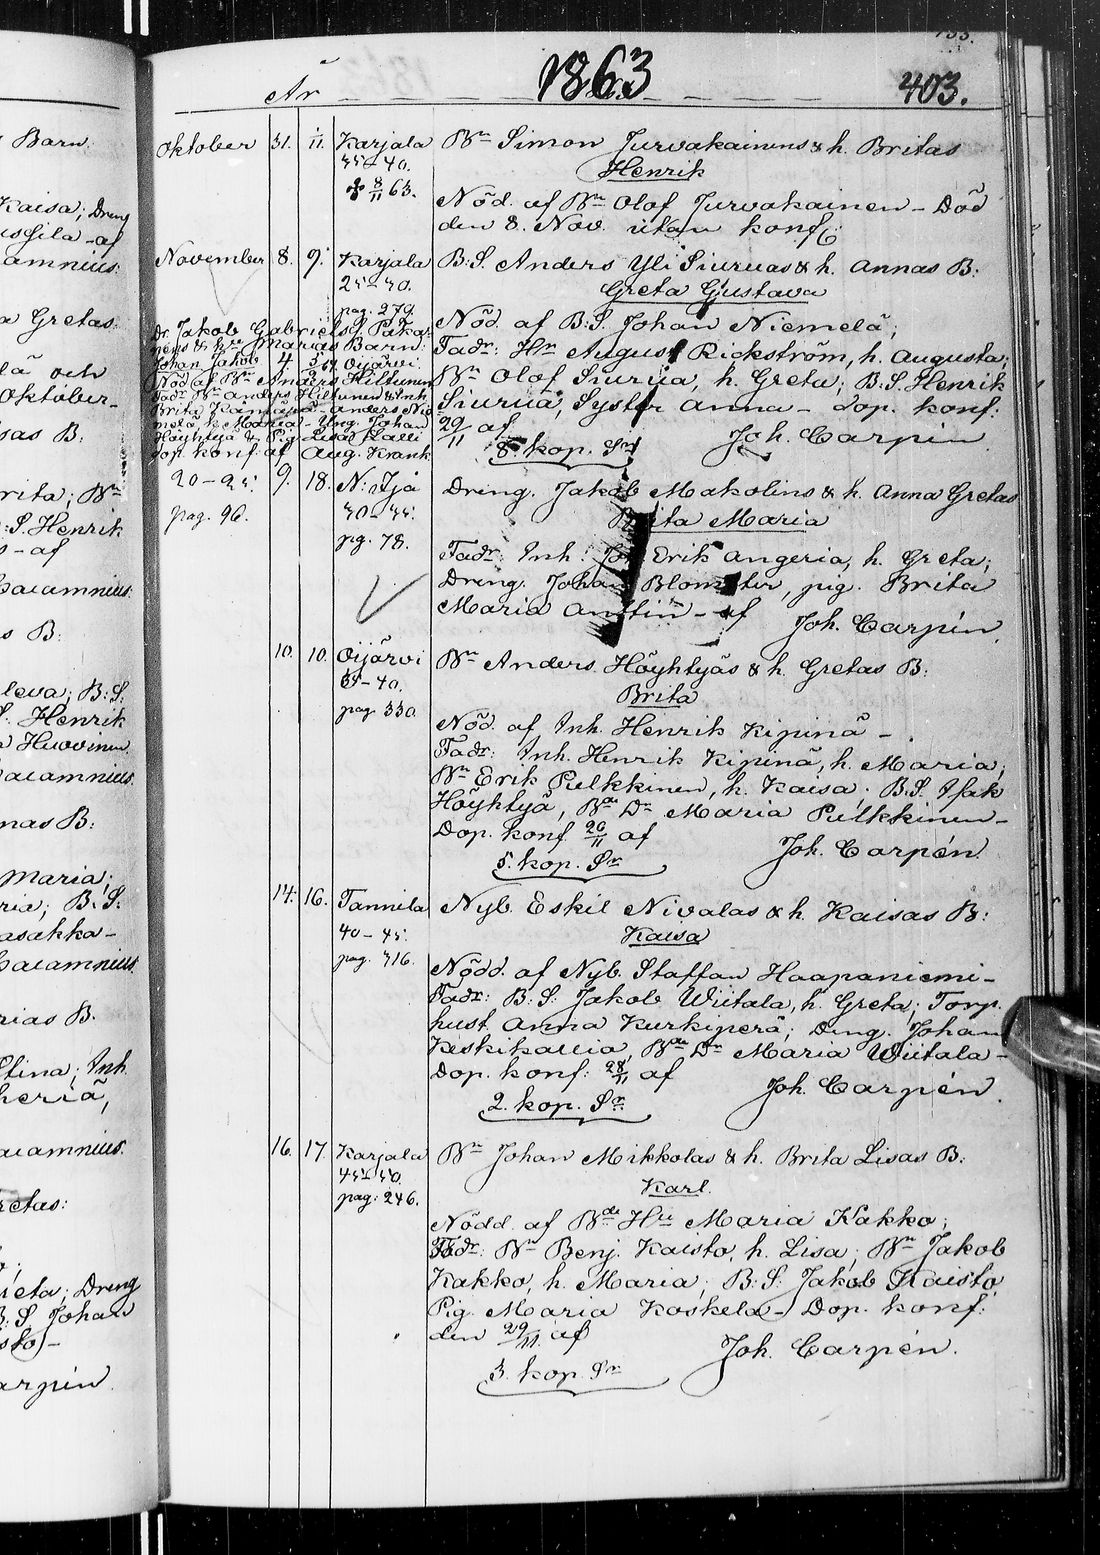 År 1863 403.
Oktober 31. 1/11. Karjala Bn Simon Jurvakainens & h. Britas
35–40. Henrik
† 8/11 63.
Nöd. af Bn Olof Jurvakainen – Död
den 8. Nov. utan konf:
November 8. 9. Karjala B.S. Anders Yli Siuruas & h. Annas B:
25–30. Greta Gustava
pag. 279.
Nöd. af B.S. Johan Niemelä;
Fadr: Hr August Rickström, h. Augusta;
Bn Olof Siurua, h. Greta; B.S. Henrik
Siurua, Syster Anna – Dop. konf:
29/11 af Joh. Carpén
8 kop. Sr
Dr. Jakob Gabrielss. Paka-
nens & hru Marias Barn:
Johan Jakob 4. 5. Oijärvi.
Nöd af Bn Anders Hiltunen
Fadr Bn Anders Hiltunen & Inh.
Brita Kämäpä – Anders Nie
melä h. Maria – Yng. Johan
Höyhtyä & Pig. Lisa Halli
Dop. konf. af Aug. Krank
20–25. 9. 18. N: Ijä Dreng. Jakob Makolins & h. Anna Gretas
pag. 96. 30–35. Brita Maria
pg. 78.
Fadr: Inh: Joh Erik Angeria, h. Greta;
Dreng. Johan Blomster, pig. Brita
Maria Anttin – af Joh. Carpén.
10. 10. Oijärvi Bn Anders Höyhtyäs & h. Gretas B:
–40. Brita
pag. 330.
Nöd. af Inh. Henrik Kipinä –
Fadr: Inh. Henrik Kipinä, h. Maria;
Bn Erik Pulkkinen, h. Kaisa; B.S. Isak
Höyhtyä, Bde Dr Maria Pulkkinen –
Dop. konf. 20/11 af Joh. Carpén.
5. kop. Sr
14. 16. Tannila Nyb. Eskil Nivalas & h. Kaisas B:
40–45. Kaisa
pag. 316.
Nödd. af Nyb. Staffan Haapaniemi –
Fadr: B.S: Jakob Wiitala, h. Greta; Torp.
hust. Anna Kurkiperä; Dreng. Johan
Keskikallia, Bde Dr Maria Wiitala –
Dop. konf: 28/11 af Joh. Carpén.
2. kop. Sr
16. 17. Karjala Bn Johan Mikkolas & h. Brita Lisas B:
45–50. Karl.
pag: 246.
Nödd. af Bde Hru Maria Kakko;
Fadr: Bn Benj. Kaisto, h. Lisa; Bn Jakob
Kakko, h. Maria; B.S: Jakob Kaisto
Pig. Maria Koskela – Dop. konf:
den 29/11. af Joh. Carpén.
3. kop. Sr